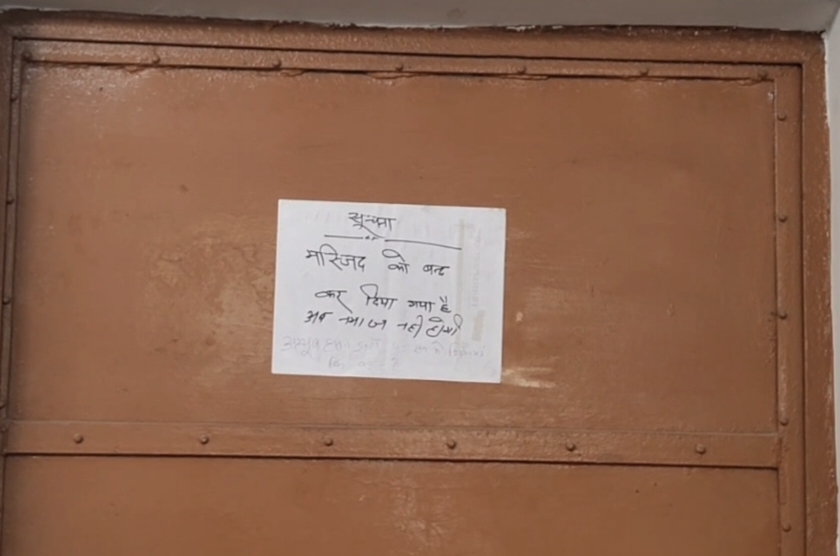 सूचना
मस्जिद को बन्द
कर दिया गया है
अब नमाज नही होगी